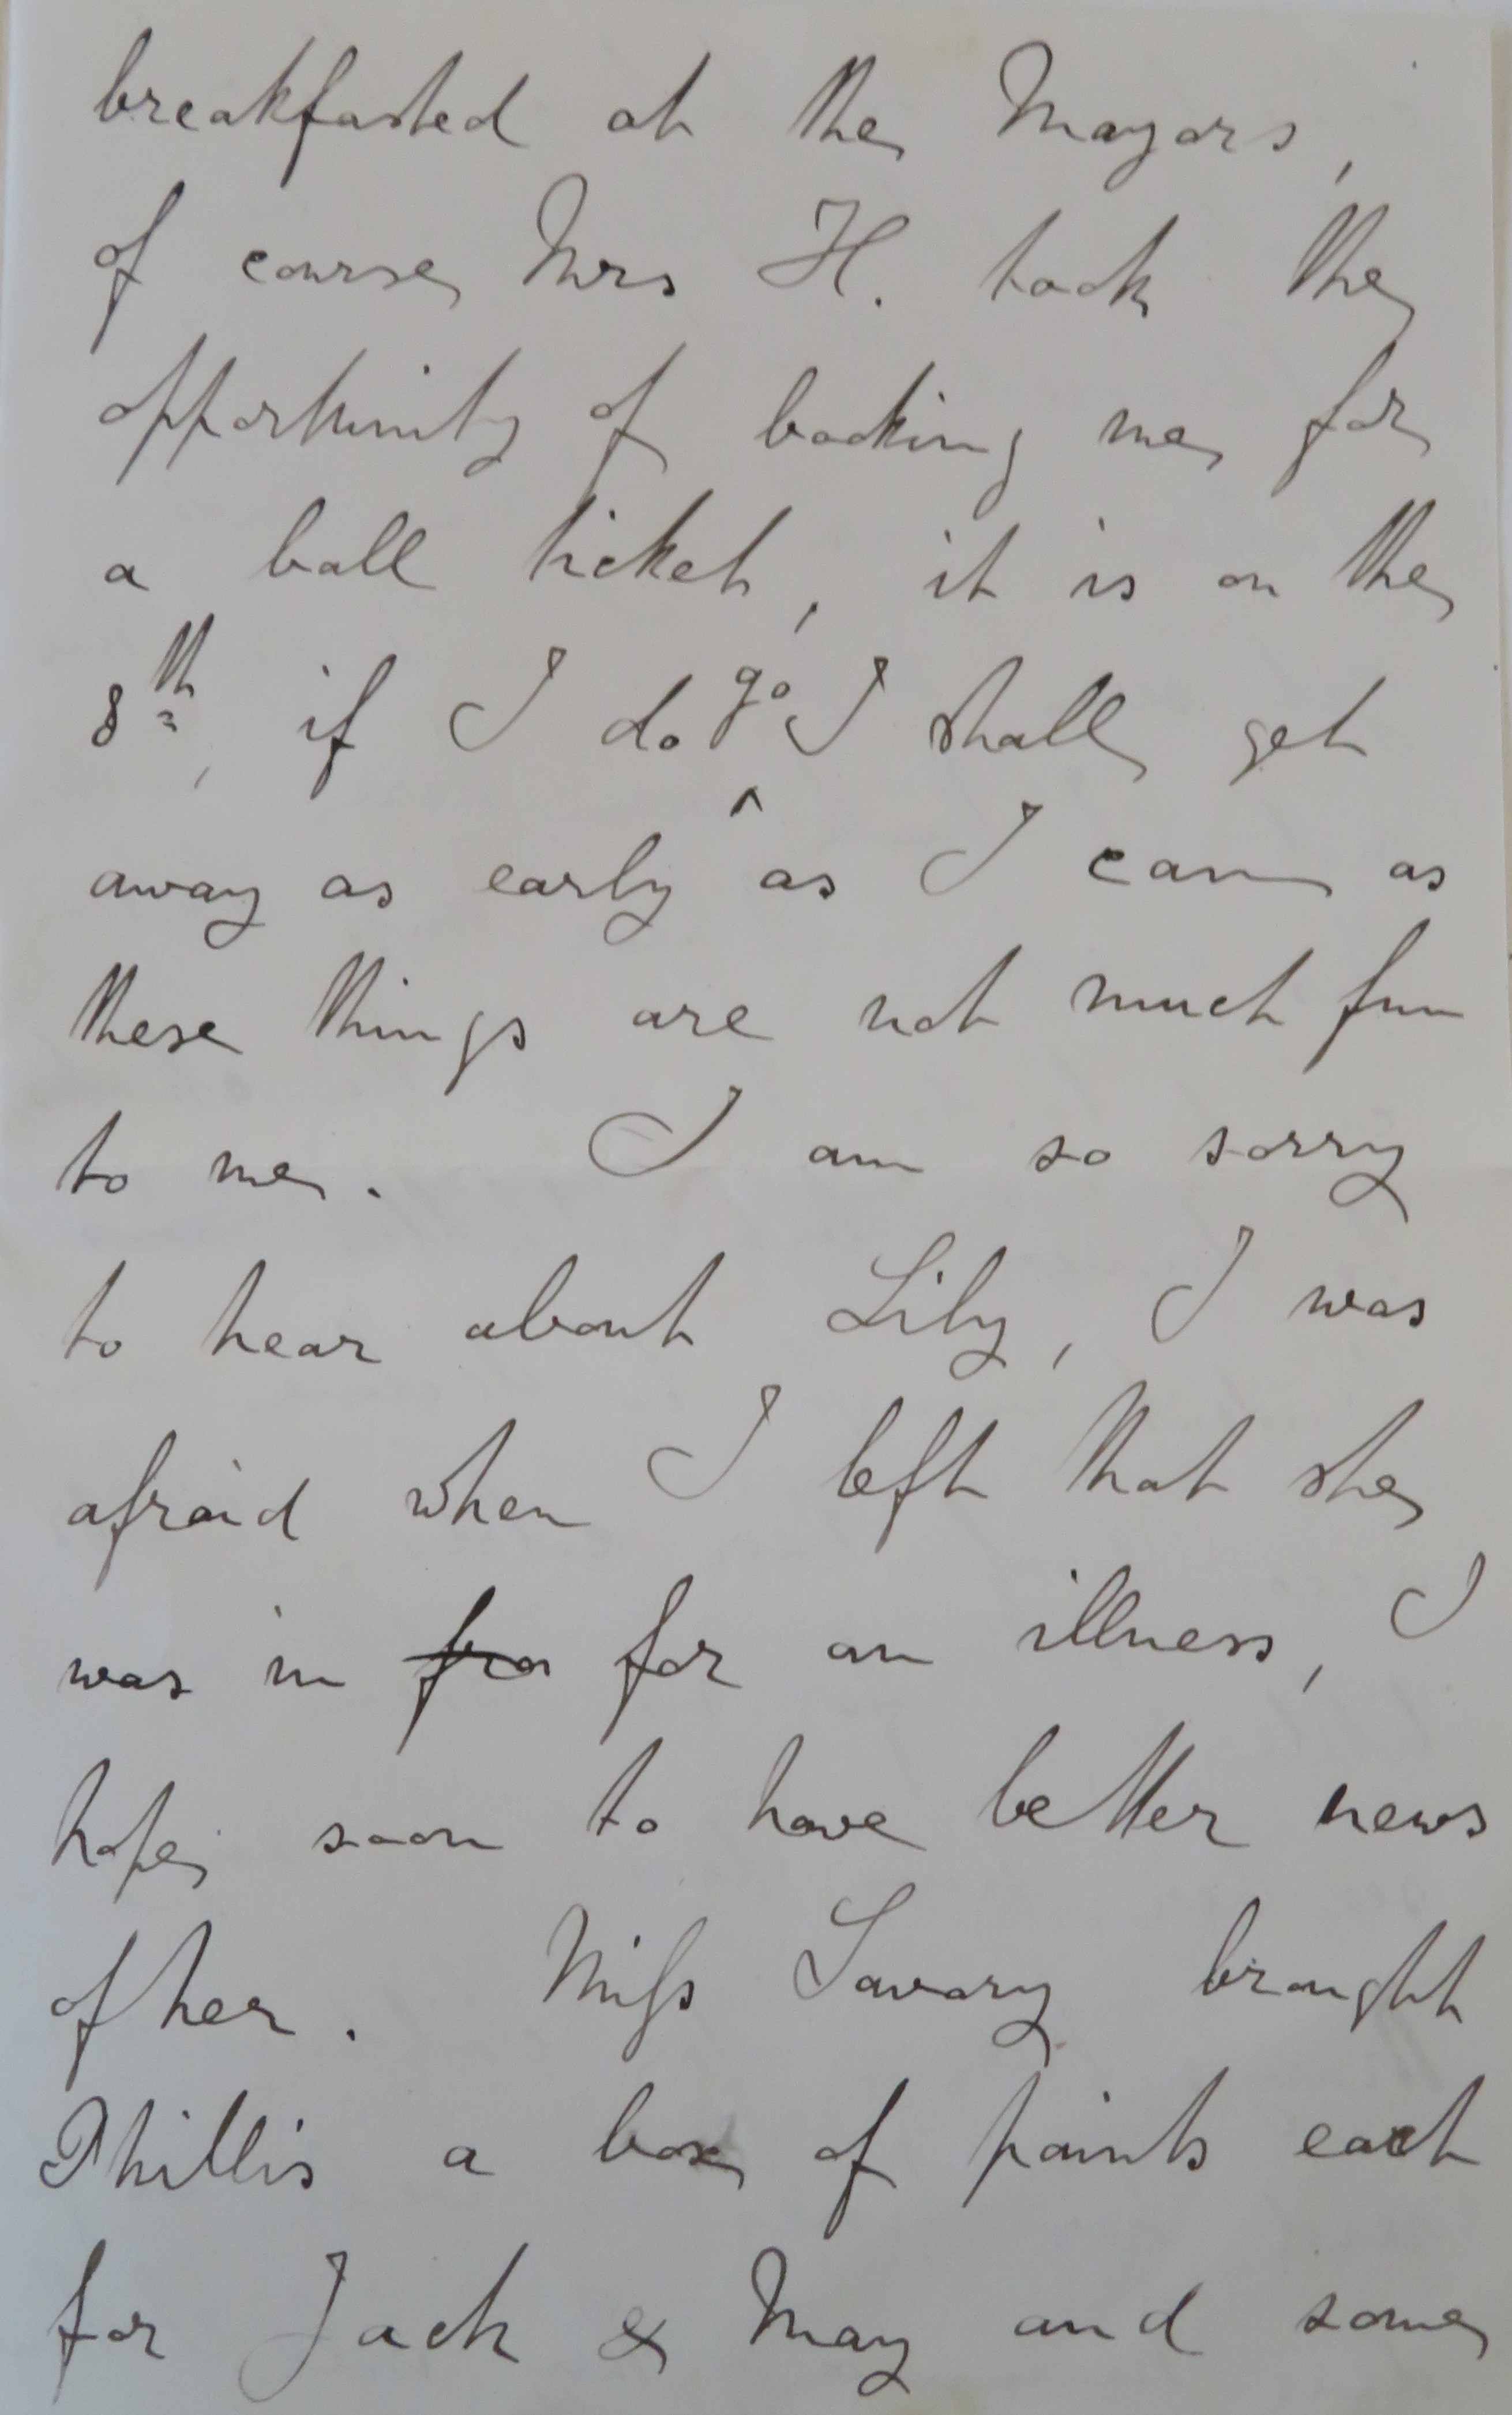 breakfasted at the Mayors,
of course Mrs H. took the
opportunity of booking me for
a ball ticket, it is on the
8th, if I do go I shall get
away as early as I can as
these things are not much fun
to me. I am so sorry
to hear about Lily, I was
afraid when I left that she
was in fra for an illness, I
hope soon to have better news
of her. Miss Savary brought
Phillis a box of paints each
for Jack & May and some